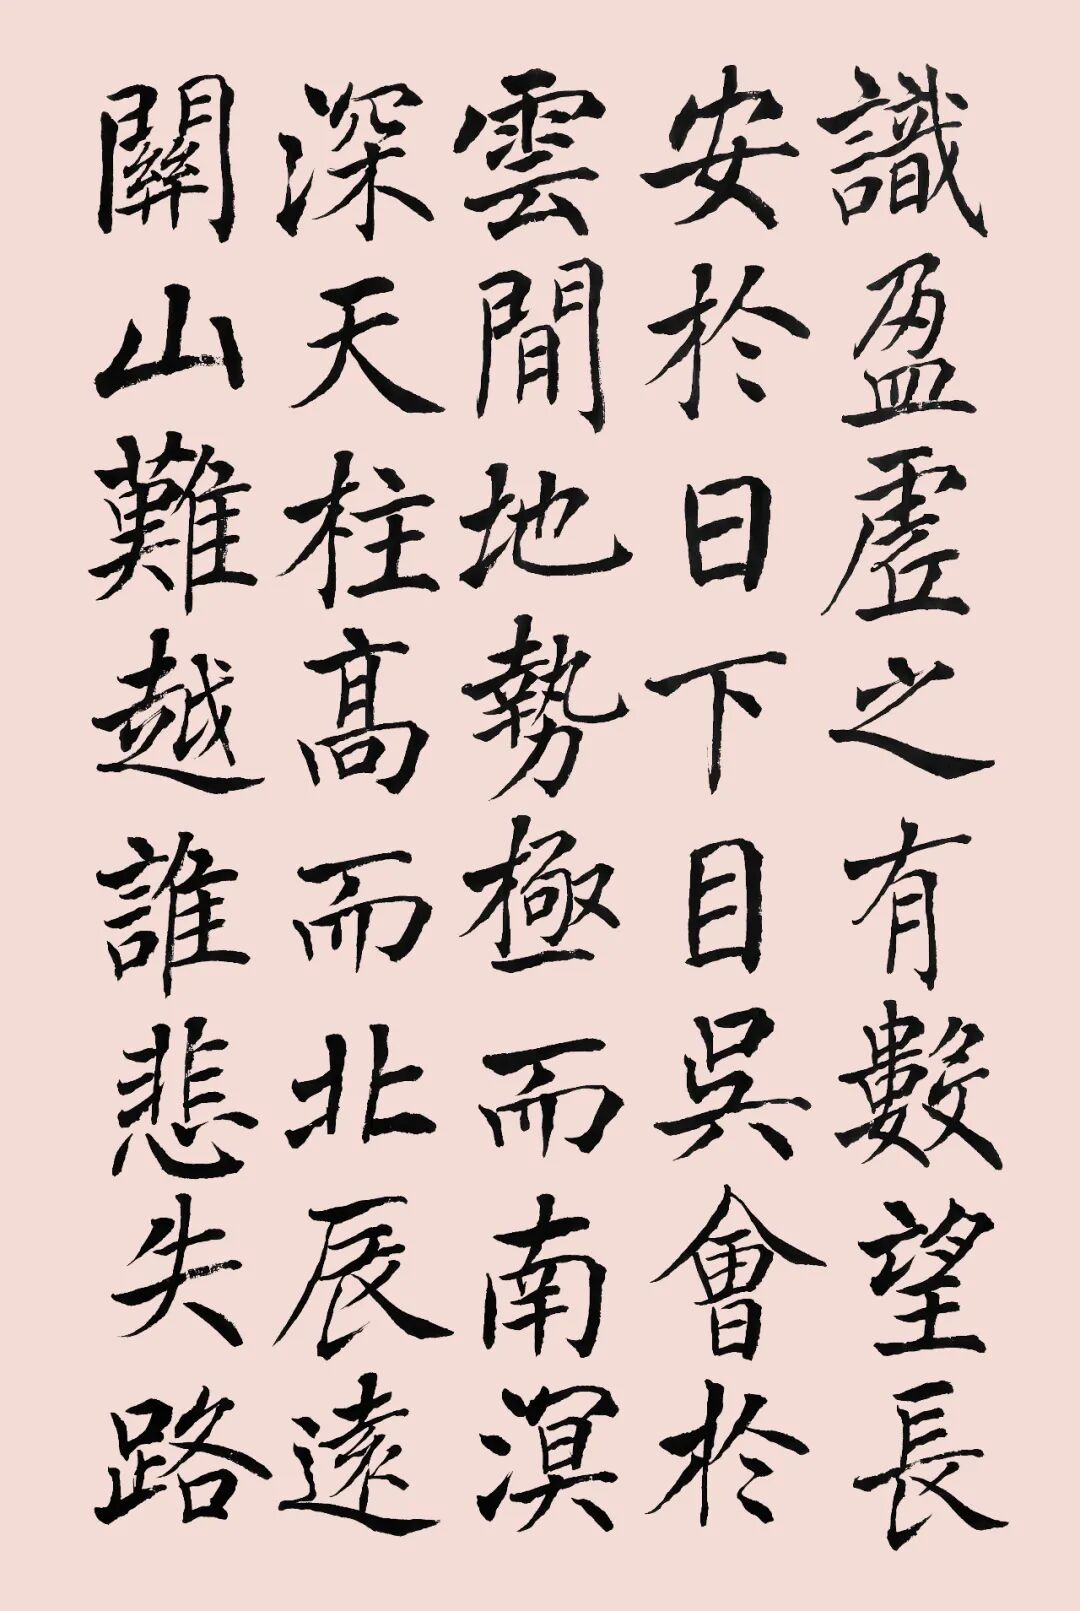 識盈虛之有數望長
安於日下目吳會於
雲間地勢極而南溟
深天柱高而北辰遠
關山難越誰悲失路